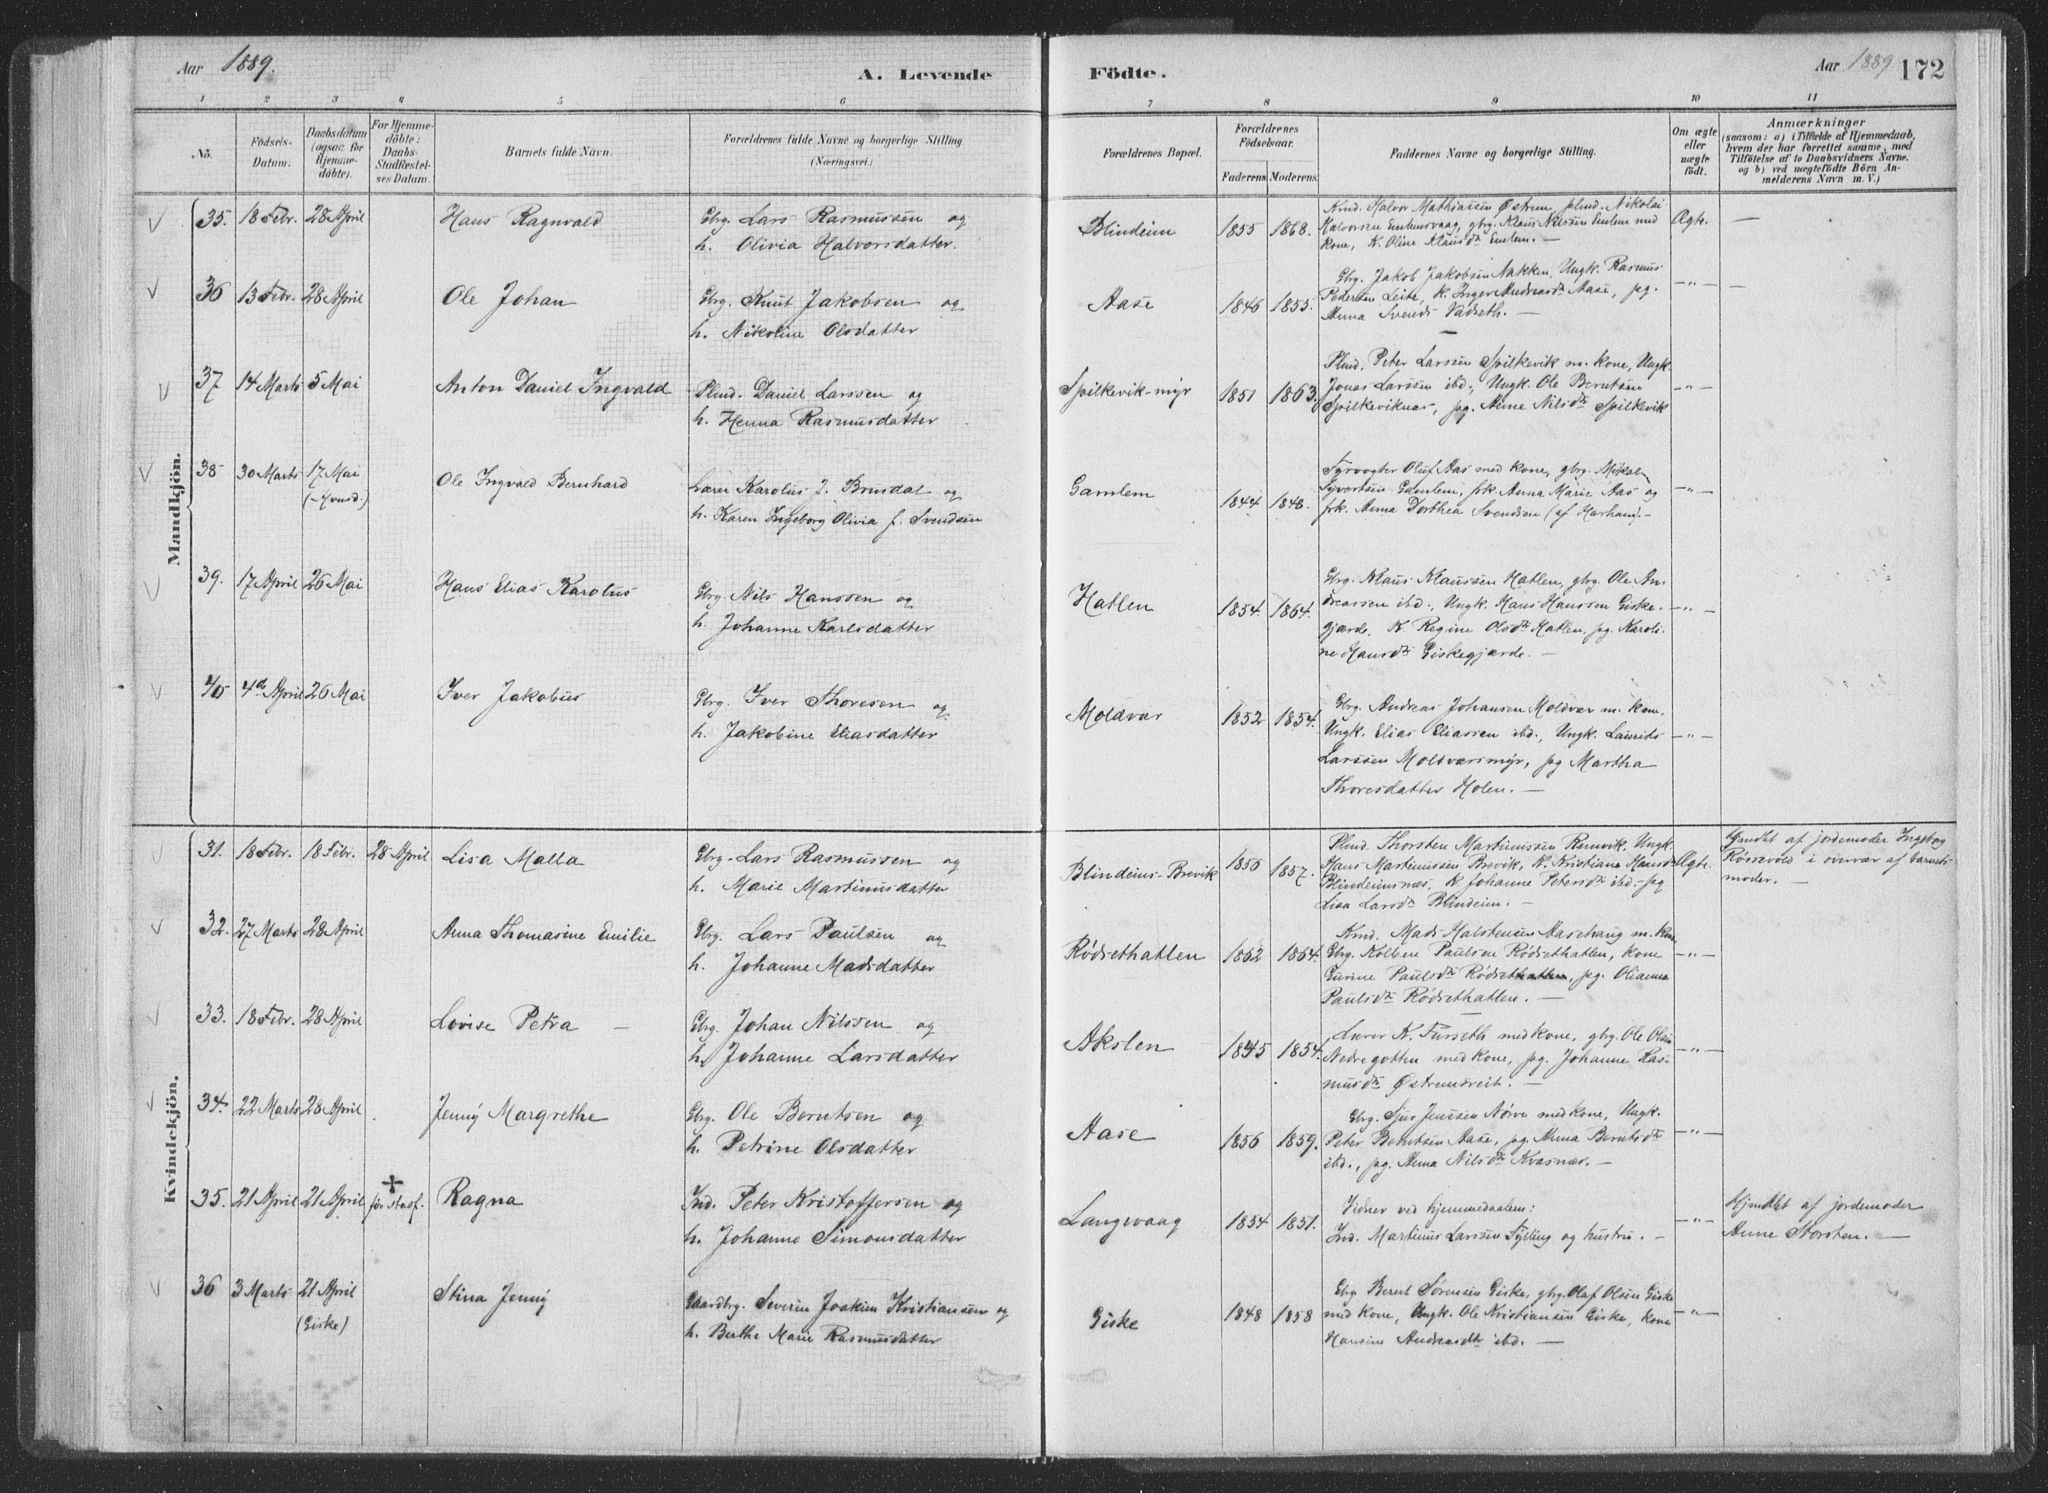 Aar 1889.
A. Levende
Födte.
Aar 1889
172
1 2 3 4 5 6 7 8 9 10 11
No.
Födsels-
Datum.
Daabsdatum
(ogsaa for
Hjemme-
döbte).
For Hjemme-
döbte:
Daabs-
Stadfæstel-
ses Datum.
Barnets fulde Navn.
Forældrenes fulde Navne og borgerlige Stilling
(Næringsvei.)
Forældrenes Bopæl.
Forældrenes
Födselsaar.
Faderens. Moderens.
Faddernes Navne og borgerlige Stilling.
Om ægte
eller
uægte
födt.
Anmærkninger
(saasom: a) i Tilfælde af Hjemmedaab,
hvem der har forrettet samme, med
Tilföielse af to Daabsvidners Navne.
og b) ved uægtefödte Börn An-
melderens Navn m. V.)
Mandkjön.
35. 18 Febr. 28 April Hans Ragnvald Gbrg. Lars Rasmussen og
h. Olivia Halvorsdatter.
Blindeim 1855 1868.
Kmd. Halvor Mathiassen Østrem, plmd. Nikolai
Halvorsen Emlemsvaag, gbrg. Klaus Nilsen Emlem med
kone, K. Oline Klausdtr Emlem. —
Ægte. —
36 13 Febr. 28 April Ole Johan Gbrg. Knut Jakobsen og
h. Nikoline Olsdatter
Aase 1846 1855.
Gbrg. Jakob Jakobsen Nakken, Ungk. Rasmus
Pedersen Leite, K. Inger Andreasdtr Aase, pg.
Anna Svends Vadseth. —
—"— —
37 14 Marts 5 Mai Anton Daniel Ingvald Plmd. Daniel Larssen og
h. Henna Rasmusdatter
Spilkevik-myr 1851 1863.
Plmd. Peter Larssen Spilkevik m. kone, Ungk.
Jonas Larssen ibd., Ungk. Ole Berntsen
Spilkeviknes, pg. Anne Nilsdtr Spilkevik
—"—
38 30 Marts 17 Mai Ole Ingvald Bernhard Lærer Karolus J. Brusdal og
h. Karen Ingeborg Olivia f. Svendsen
Gamlem 1844 1848.
Fyrvogter Oluf Aas med kone, gbrg. Mikal
Syvertsen Gamlem, frk. Anna Marie Aas og
frk. Anna Dorthea Svendsen (af Harham). —
—"—
39. 17 April 26 Mai Hans Elias Karolus Gbrg. Nils Hanssen og
h. Johanne Karlsdatter
Hatlen 1854. 1864.
Gbrg. Klaus Klaussen Hatlen, gbrg. Ole An-
dreassen ibd., Ungk. Hans Hanssen Giske-
gjærde, K. Regine Olsdtr Hatlen, pg. Karoli-
ne Hansdtr Giskegjærde. —
—"—
40 4de April 26 Mai Iver Jakobus Gbrg. Iver Thoresen og
h. Jakobine Eliasdatter
Moldvær 1852 1854.
Gbrg. Andreas Johansen Moldvær m. kone,
Ungk. Elias Eliassen ibd., Ungk. Laurits
Larssen Moldværsmyr, pg Martha
Thoresdatter Holen. —
—"—
Kvindekjön.
31. 18 Febr. 18 Febr. 28 April Lisa Malla Gbrg. Lars Rasmussen og
h. Marie Martinusdatter
Blindeims-Brevik 1856 1857.
Plmd. Thorsten Martinussen Remvik, Ungk.
Hans Martinussen Brevik, K. Kristiane Hansdtr
Blindeimsnæs, K. Johanne Petersdtr ibd., pg
Lisa Larsdtr Blindeim. —
Ægte.
Hjmdbt af jordemoder Ingebrg
Røssevold i overvær af barnets
moder. —
32. 27 Marts 28 April Anna Thomasine Emilie Gbrg. Lars Paulsen og
h. Johanne Madsdatter
Rødsethatlen 1862 1864.
Kmd. Mads Halstensen Aasehaug m. kone,
Gbrg. Kolben Paulsen Rødsethatlen, kone
Gurine Paulsdtr Rødsethatlen, pg. Olianna
Paulsdtr Rødsethatlen. —
—"—
33. 18 Febr. 28 April Lovise Petra — Gbrg. Johan Nilssen og
h. Johanne Larsdatter
Akslen 1845 1854.
Lærer K. Furseth med kone, gbrg. Ole Olsen
Nedregotten med kone, pg. Johanne Ras-
musdtr Østremsreit. —
—"—
34. 22 Marts 28 April Jenny Margrethe Gbrg. Ole Berntsen og
h. Petrine Olsdatter
Aase 1856 1859.
Gbrg. Sjur Jenssen Nørve med kone, Ungk.
Peter Berntsen Aase, pg. Anna Berntsdtr
ibd., pg. Anna Nilsdtr Kvasnæs. —
—"—
35. 21 April 21 April + før stadf. Ragna Ind. Peter Kristoffersen og
h. Johanne Simonsdatter
Langevaag 1854 1851.
Vidner ved hjemmedaaben:
Ind. Martinus Larssen Fylling og hustru. —
—"—
Hjmdbt af jordemoder
Anne Storsten. —
36 3 Marts 21 April
(Giske)
Stina Jenny Gaardbrg. Severin Joakim Kristiansen og
h. Berthe Marie Rasmusdatter
Giske 1848 1858
Gbrg Bernt Sørensen Giske, gbrg. Olaf Olsen Giske
med kone, Ungk. Ole Kristiansen Giske, kone
Hansine Andreasdtr ibd. —
—"—